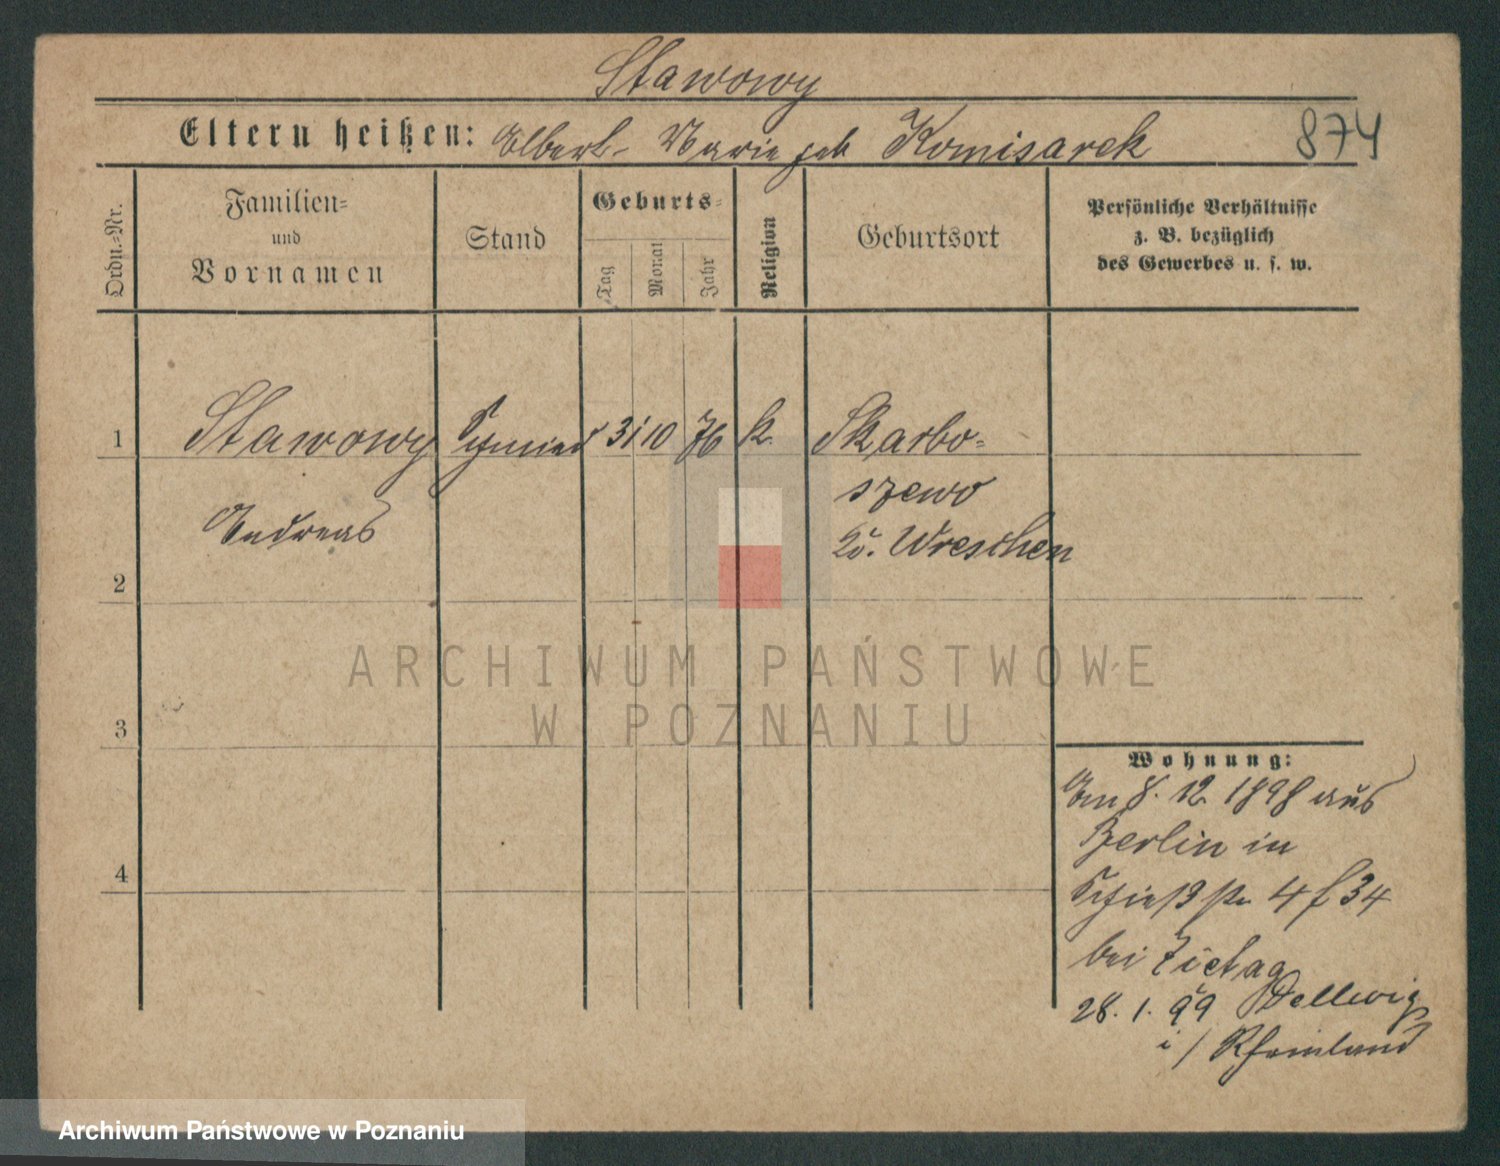 Stawowy
Eltern heißen: Albert - Marie geb Komisarek 874
Ordn.-Nr.
Familien-
und
Vornamen
Stand
Geburts-
Tag
Monat
Jahr
Religion
Geburtsort
Persönliche Verhältnisse
z. B. bezüglich
des Gewerbes u. s. w.
1 Stawowy Schmied 31 10 76 k. Skarbo-
szewo
Andreas
Kr. Wreschen
2
3
4
ARCHIWUM PAŃSTWOWE
W POZNANIU
Wohnung:
Am 8. 12. 1898 aus
Berlin in
Schießstr 4 f 34
bei Zietag
28. 1. 99 Dellwig
i/ Rheinland
Archiwum Państwowe w Poznaniu